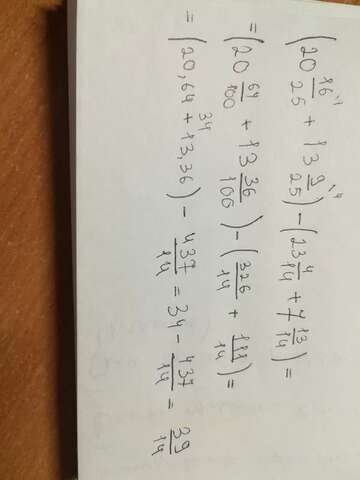 (20 16/25 + 13 9/25) - (23 4/14 + 7 13/14) =
= (20 64/100 + 13 36/100) - (326/14 + 111/14) =
= (20,64 + 13,36) - 437/14 = 34 - 437/14 = 39/14